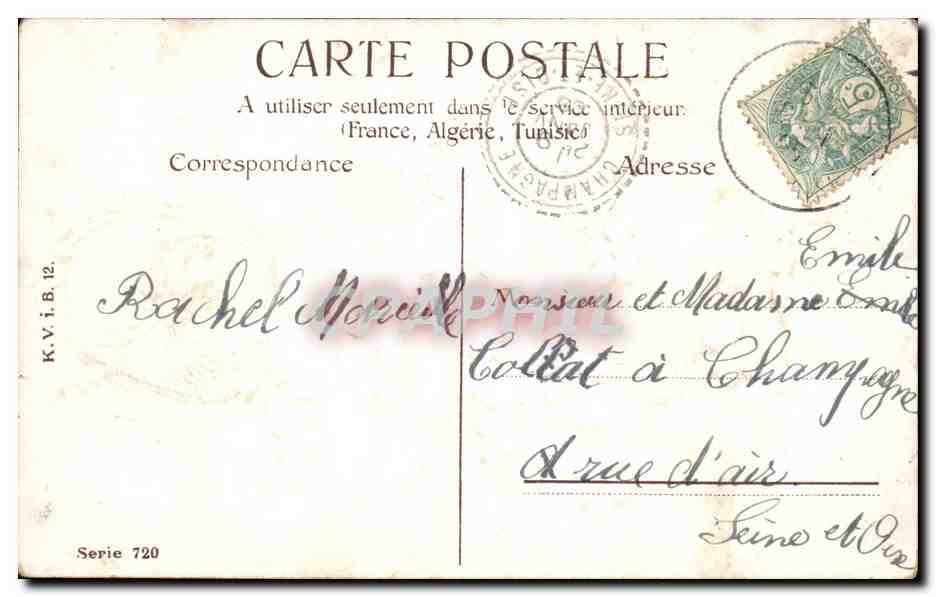 CARTE POSTALE
A utiliser seulement dans le service intérieur
(France, Algérie, Tunisie)
Correspondance
Adresse
CHAMPAGNE
Rachel
Emile
Monsieur et Madame Emile
à Champagne
rue d'air
Seine et Oise
K. V. i. B. 12.
Serie 720
APHIL